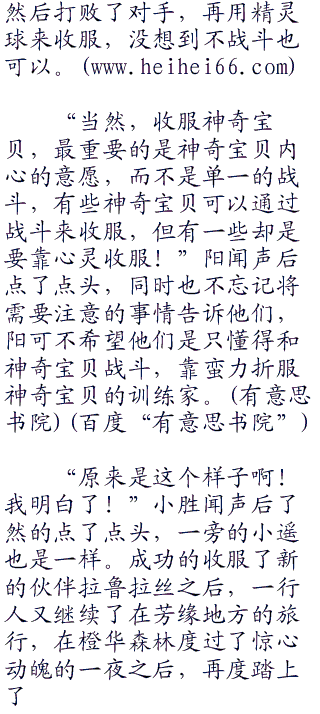 然后打败了对手，再用精灵
球来收服，没想到不战斗也
可以。(www.heihei66.com)
“当然，收服神奇宝
贝，最重要的是神奇宝贝内
心的意愿，而不是单一的战
斗，有些神奇宝贝可以通过
战斗来收服，但有一些却是
要靠心灵收服！”阳闻声后
点了点头，同时也不忘记将
需要注意的事情告诉他们，
阳可不希望他们是只懂得和
神奇宝贝战斗，靠蛮力折服
神奇宝贝的训练家。(有意思
书院)(百度“有意思书院”)
“原来是这个样子啊！
我明白了！”小胜闻声后了
然的点了点头，一旁的小遥
也是一样。成功的收服了新
的伙伴拉鲁拉丝之后，一行
人又继续了在芳缘地方的旅
行，在橙华森林度过了惊心
动魄的一夜之后，再度踏上
了